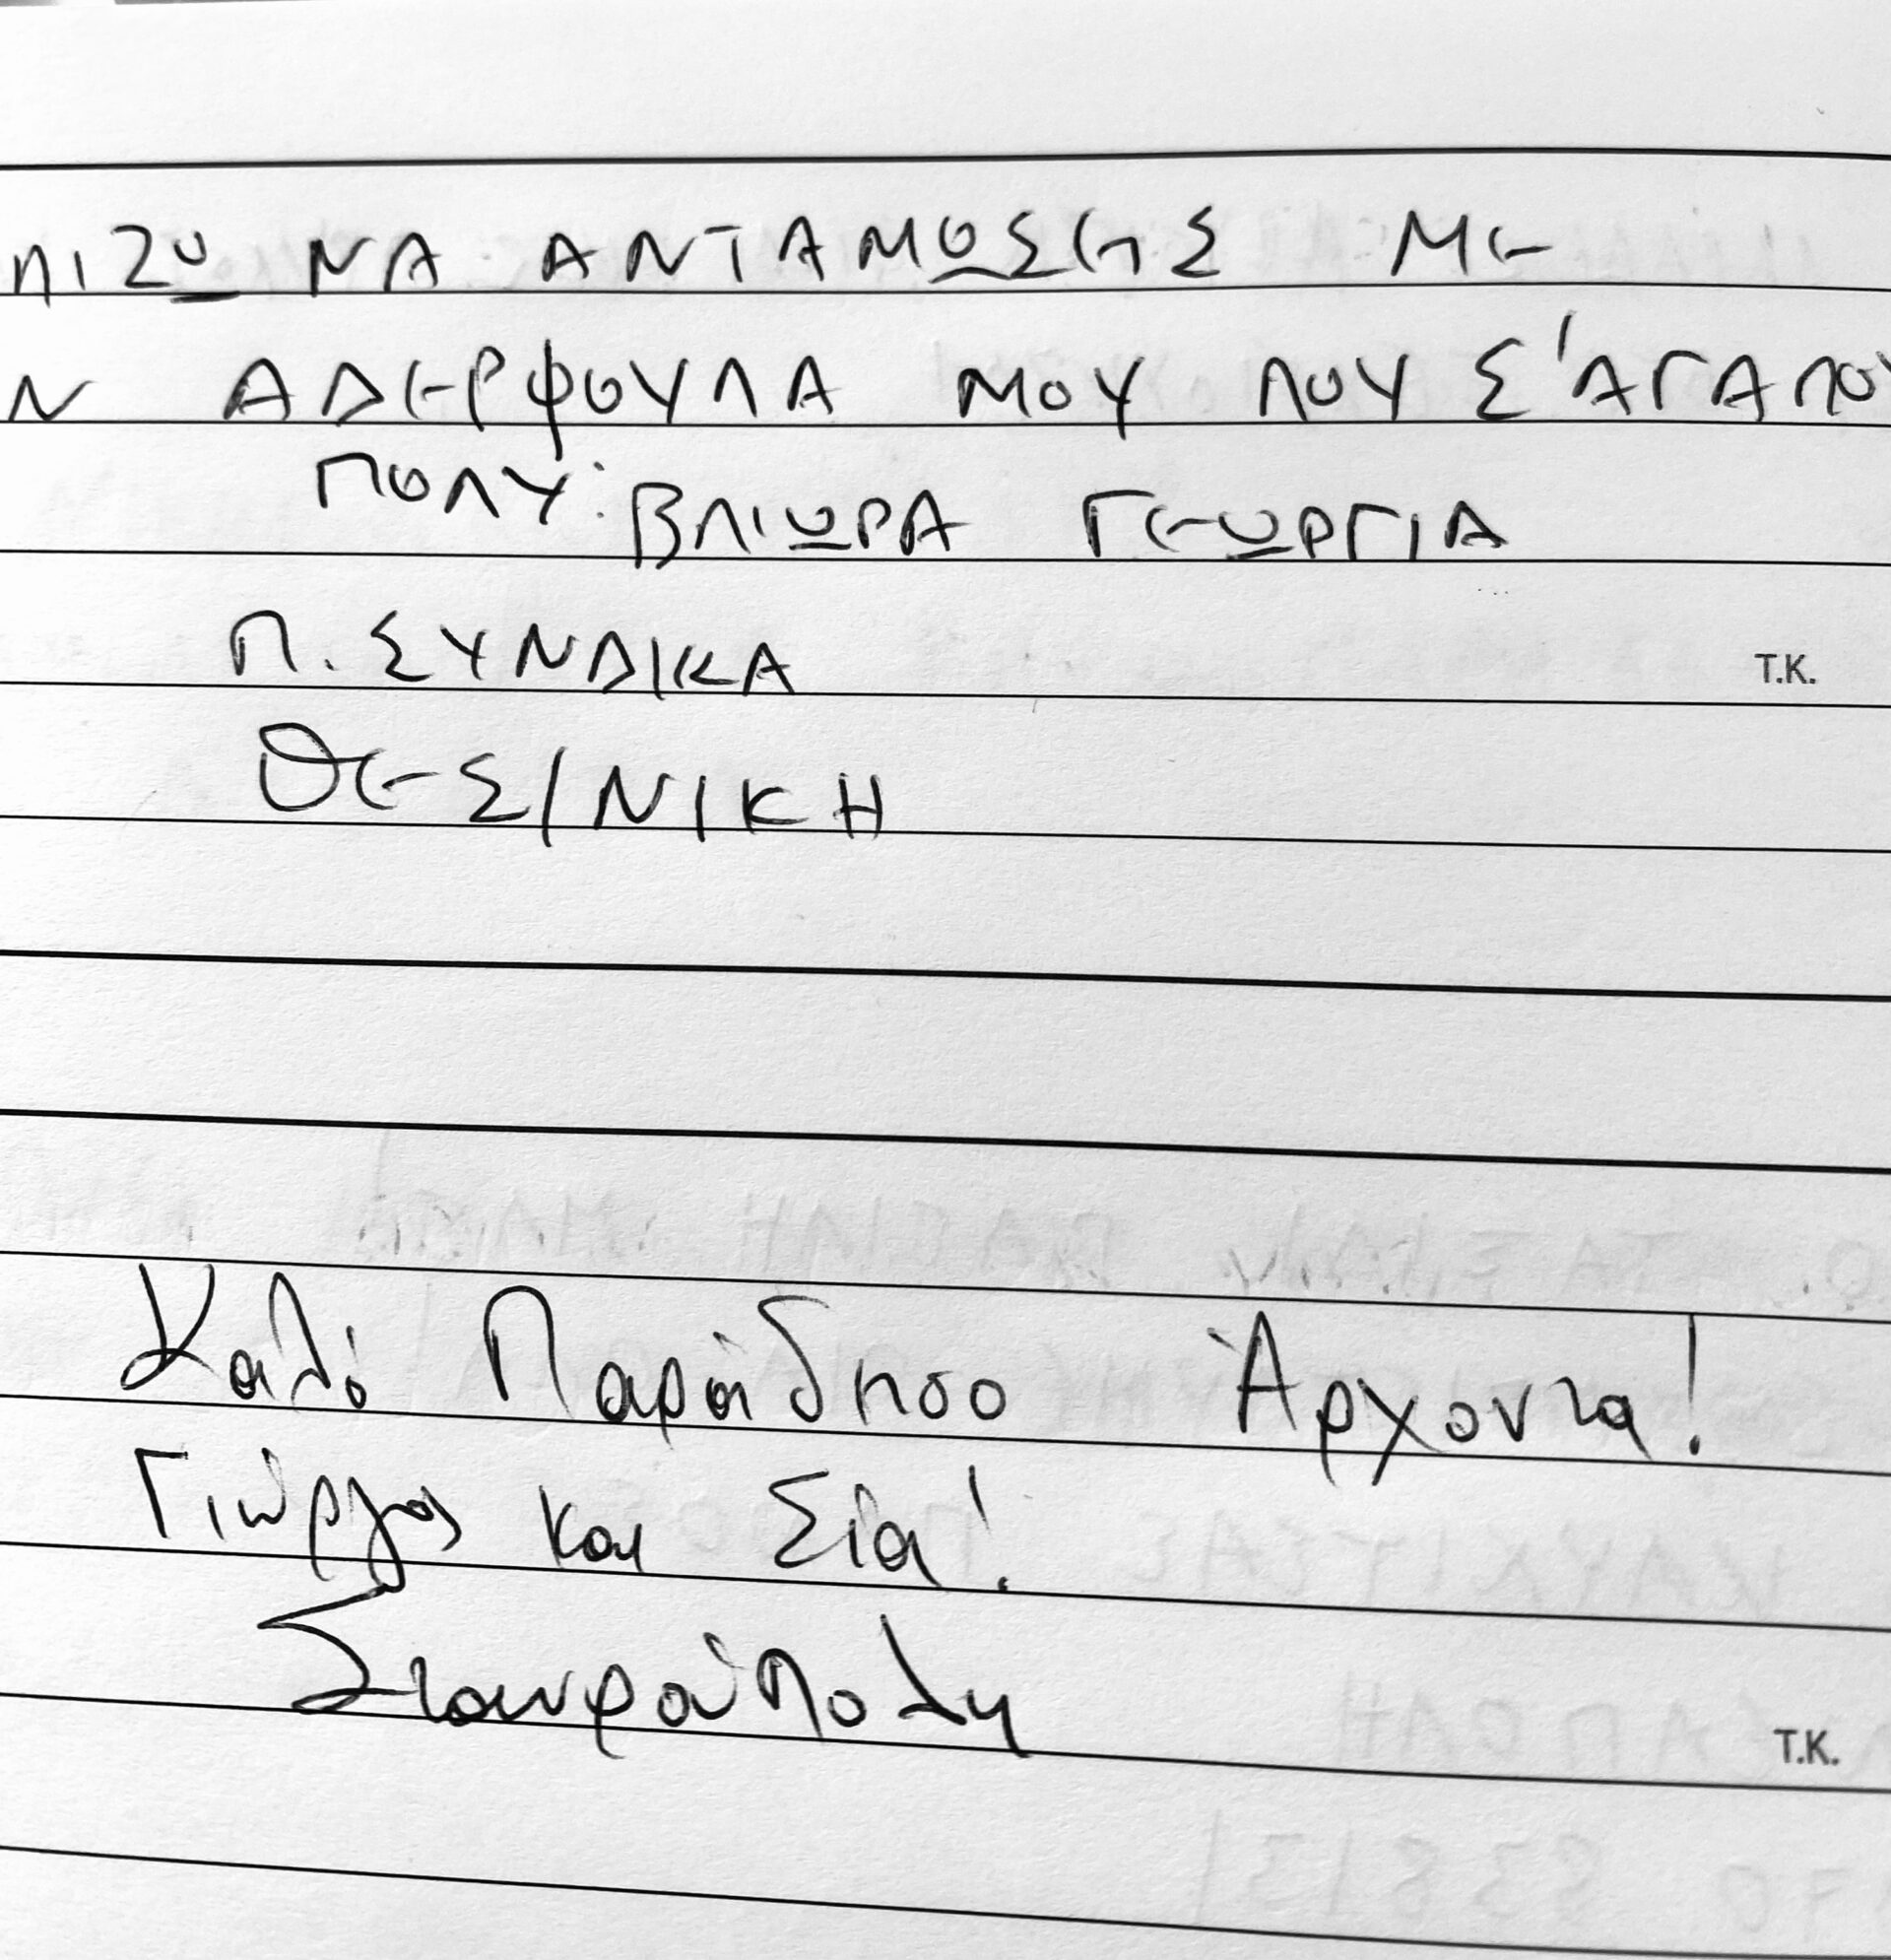 ΠΙΖΩ ΝΑ ΑΝΤΑΜΩΣΕΙΣ ΜΕ
Ν ΑΔΕΡΦΟΥΛΑ ΜΟΥ ΠΟΥ Σ'ΑΓΑΠΟΥ
ΠΟΛΥ: ΒΛΙΩΡΑ ΓΕΩΡΓΙΑ
Π. ΣΥΝΔΙΚΑ
Τ.Κ.
ΘΕΣ/ΝΙΚΗ
Καλό Παράδησο Άρχοντα!
Γιώργος και Σία!
Σταυρούπολη
Τ.Κ.